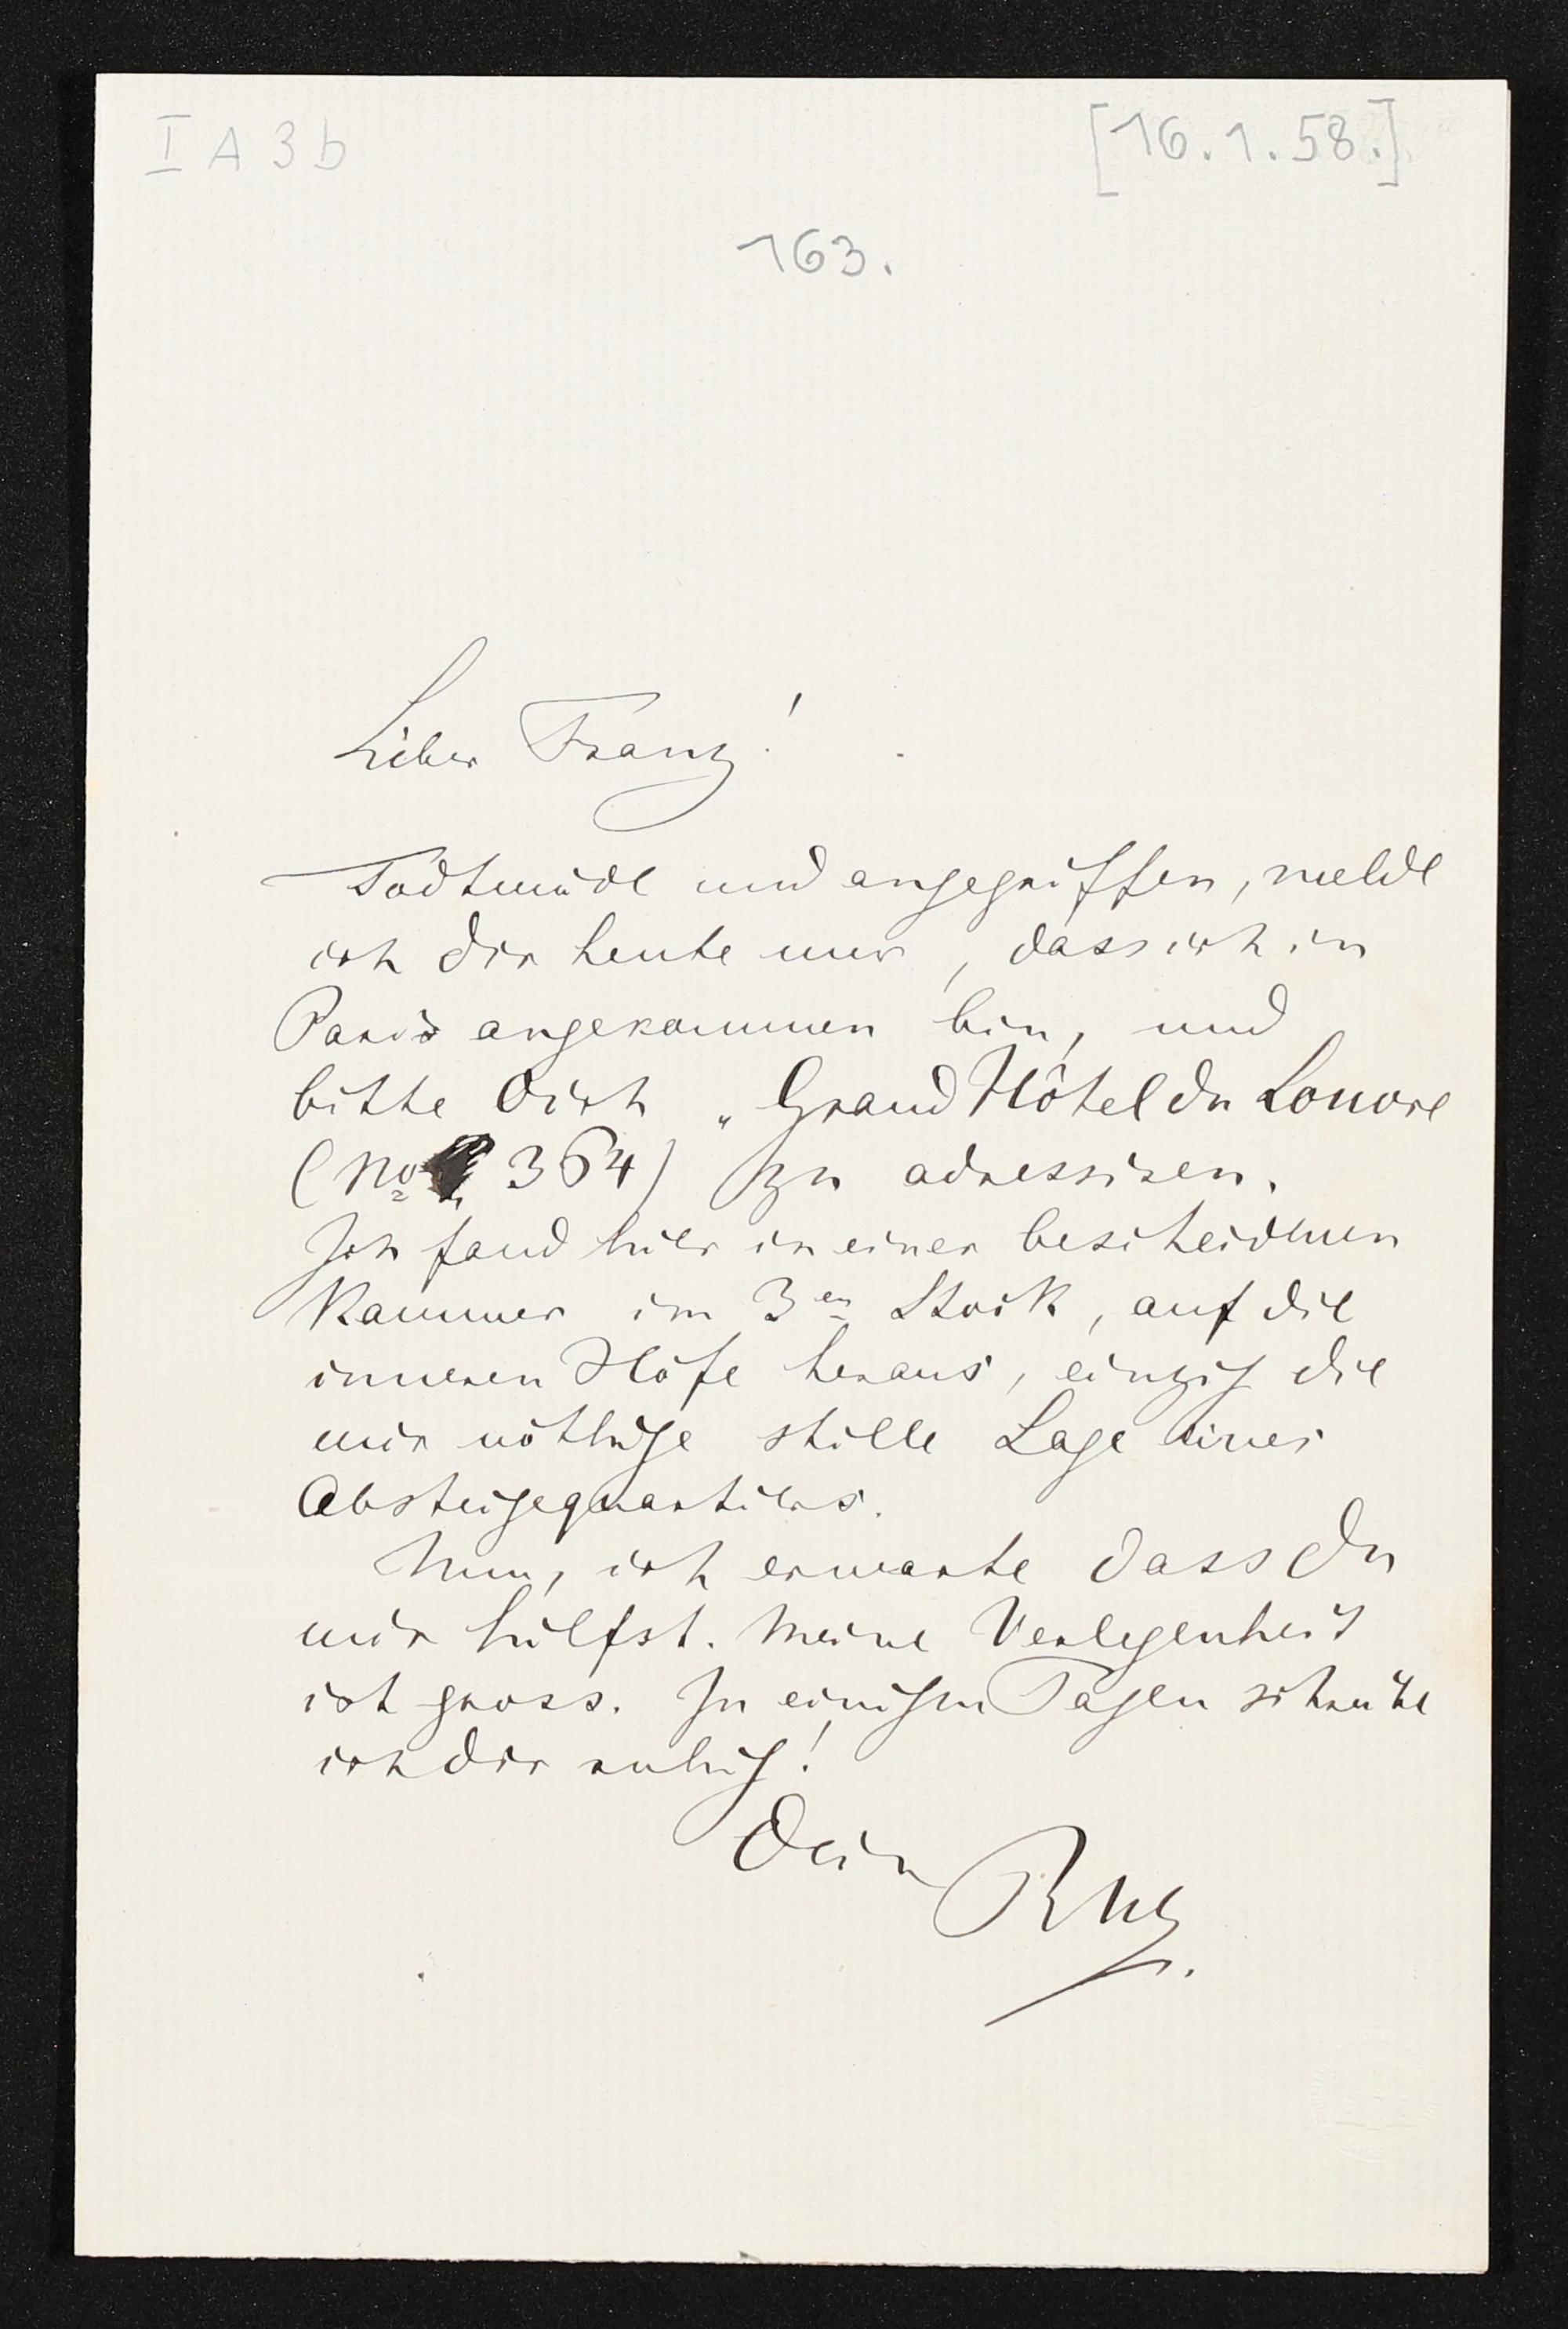 I A 3 b
[16.1.58.]
163.
Lieber Franz!
Todtmüde und angegriffen, melde
ich Dir heute nur, dass ich in
Paris angekommen bin, und
bitte Dich „Grand Hôtel du Louvre
(No 364) zu adressiren.
Ich fand hier in einer bescheidenen
Kammer im 3en Stock, auf die
inneren Höfe heraus, einzig die
mir nöthige stille Lage eines
Absteigequartiers.
Nun, ich erwarte dass Du
mir hilfst. Meine Verlegenheit
ist gross. In einigen Tagen schreibe
ich Dir ruhig!
Dein